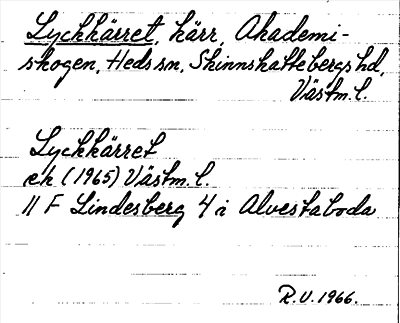 Lyckkärret, kärr, Akademi-
skogen, Heds sn, Skinnskattebergs hd,
Västm. l.
Lyckkärret
ek (1965) Västm. l.
11 F Lindesberg 4 i Alvestaboda
R.U. 1966.